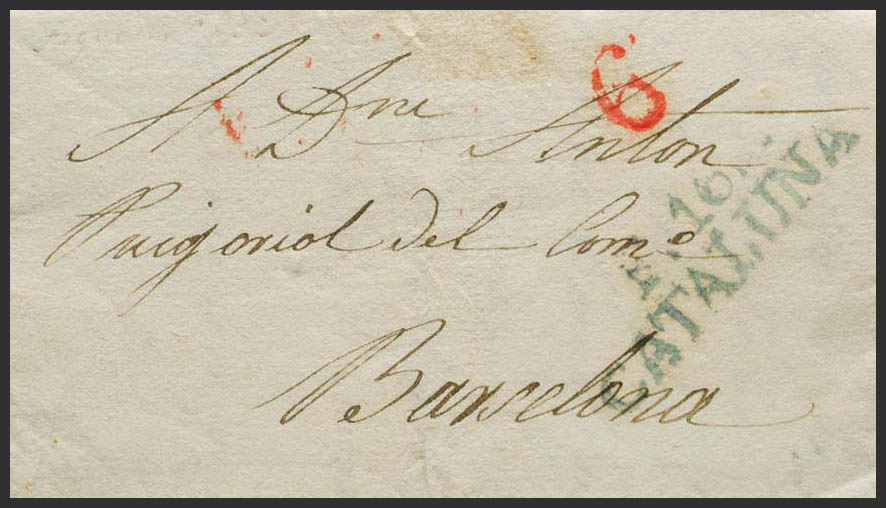 6
A Dn Anton
Puigoriol del Como
Barcelona
CATALUNA